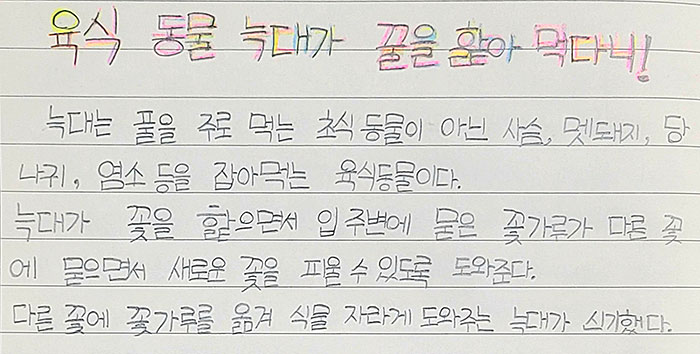 육식 동물 늑대가 꿀을 핥아 먹다니!
늑대는 풀을 주로 먹는 초식동물이 아닌 사슬, 멧돼지, 당
나귀, 염소 등을 잡아먹는 육식동물이다.
늑대가 꽃을 핥으면서 입 주변에 묻은 꽃가루가 다른 꽃
에 묻으면서 새로운 꽃을 피울 수 있도록 도와준다.
다른 꽃에 꽃가루를 옮겨 식물 자라게 도와주는 늑대가 신기했다.